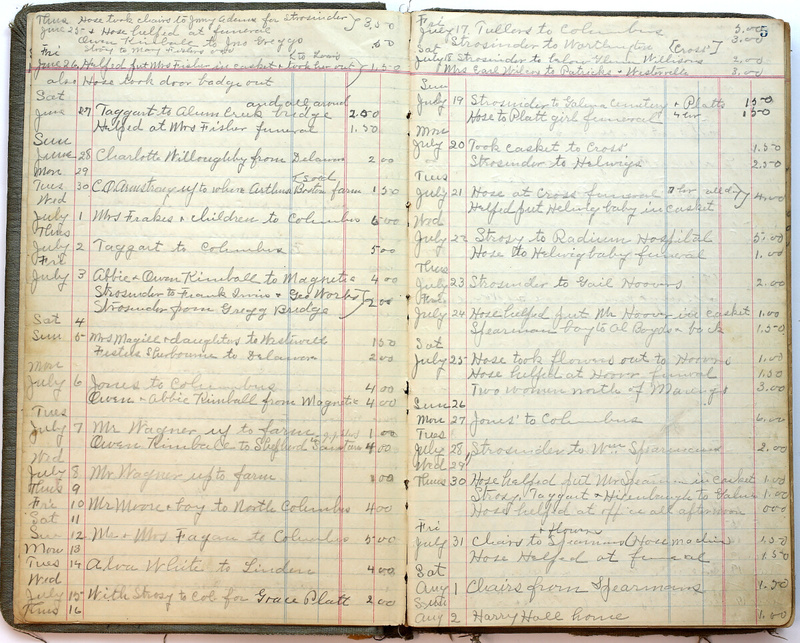 Thurs Hose took chairs to Jmy Adams for Strosnider
June 25 & Hose helped at funeral } 3.50
Owen Kimball to Jno Greggs 50
Fri Strosy to Mary Fishers & to town
June 26 Helped put Mrs Fisher in casket & took her out 1.50
also Hose took door badge out
Sat and all around
June 27 Taggart to Alum Creek bridge 2.50
Helped at Mrs Fisher funeral 1.50
Sun
June 28 Charlotte Willoughby from Delaware 2 00
Mon 29
Tues 30 C D Armstrong up to where Arthur Boston farm 1 50
Wed
July 1 Mrs Freakes & children to Columbus 6 00
Thurs
July 2 Taggart to Columbus 5 00
Fri
July 3 Abbie & Owen Kimball to Magnetic 4 00
Strosnider to Frank Irwin & Geo Works
Strosnider from Gregg Bridge } 2 00
Sat 4
Sun 5 Mrs Magill & daughters to Westerville 1 50
Sherbourne to Delaware 2 00
Mon
July 6 Jones to Columbus 4 00
Owen & Abbie Kimball from Magnetic 4 00
Tues
July 7 Mr Wagner up to farm 1 00
Owen Kimball to 4 00
Wed
July 8 Mr Wagner up to farm 1 00
Thurs 9
Fri 10 Mr Moore & boy to North Columbus 4 00
Sat 11
Sun 12 Mr & Mrs Fagan to Columbus 5 00
Mon 13
Tues 14 Alva White to Linden 4 00
Wed
July 15 With Strosy to Col for Grace Platt 2 00
Thurs 16
5
Fri
July 17 Tullers to Columbus 5.00
Sat Strosnider to Worthington [Cross'] 3.00
July 18 Strosnider to below Glenn Willisons 2.00
Mrs Earl Wilcox to Patricks & Westerville 3.00
Sun
July 19 Strosnider to Galena Cemetery & Platts 1 50
Hose to Platt girl funeral 1 50
Mon
July 20 Took casket to Cross' 1.50
Strosnider to Helwigs 2.50
Tues
July 21 Hose at Cross funeral
Helped put Helwig baby in casket } 4.00
Wed
July 22 Strosy to Radium Hospital 5.00
Hose to Helwig baby funeral 1.00
Thurs
July 23 Strosnider to Gail Hoovers 2.00
Fri
July 24 Hose helped put Mr Hoover in casket 1.00
Spearman boy to Al Boyds & back 1.50
Sat
July 25 Hose took flowers out to Hoovers 1.00
Hose helped at Hoover funeral 1.50
Two women north of Marengo 3.00
Sun 26
Mon 27 Jones' to Columbus 6.00
Tues
July 28 Strosnider to Wm Spearmans 2.00
Wed 29
Thurs 30 Hose helped put Mr Spearman in casket 1.00
Strosy, Taggart & to Galena 1.00
Hose helped at office all afternoon 000
Fri & flowers
July 31 Chairs to Spearmans (Hose machine 1.50
Hose Helped at funeral 1.50
Sat
Aug 1 Chairs from Spearmans 1.50
Sun
Aug 2 Harry Hall home 1.00